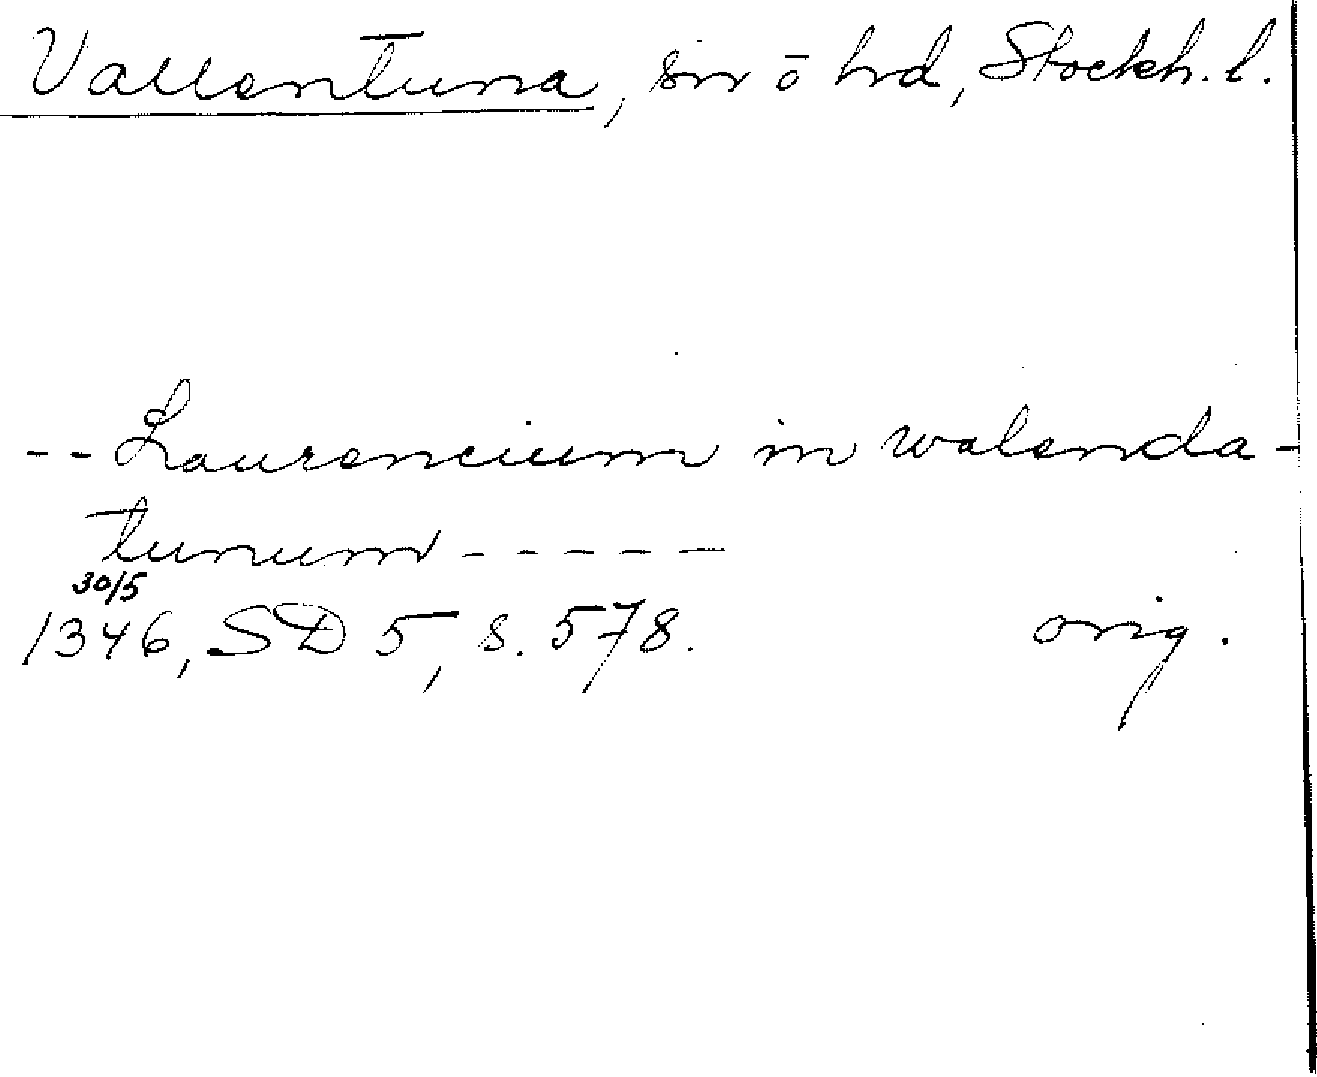 Vallentuna, sn o hd, Stockh. l.
-- Laurencium in walenda-
tunum -----
30/5
1346, SD 5, s. 578. orig.